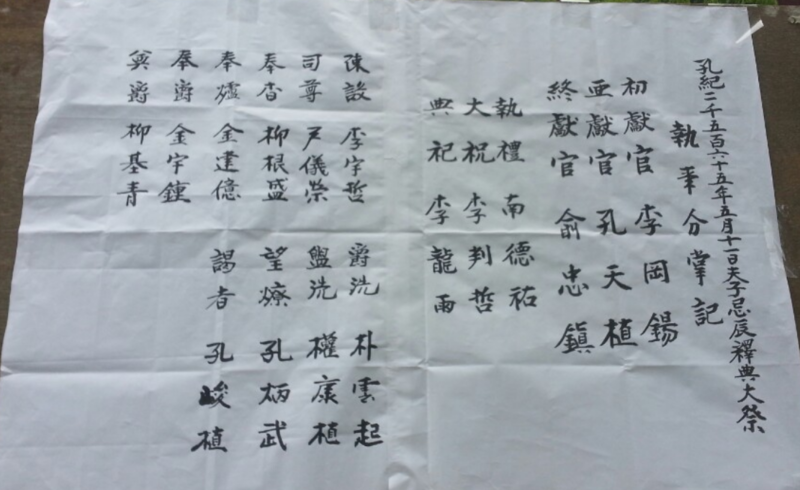 孔紀二千五百六十五年五月十一日夫子忌辰釋典大祭
執事分掌記
初獻官 李岡錫
亜獻官 孔天植
終獻官 俞忠鎭
執禮 南德祐
大祝 李判哲
典祀 李龍雨
陳設 李宇哲
司尊 尸儀榮
奉香 柳根盛
奉爐 金達億
奉爵 金宇鍾
奠爵 柳基青
爵洗 朴雲起
盥洗 權康植
望燎 孔柄武
謁者 孔峻植